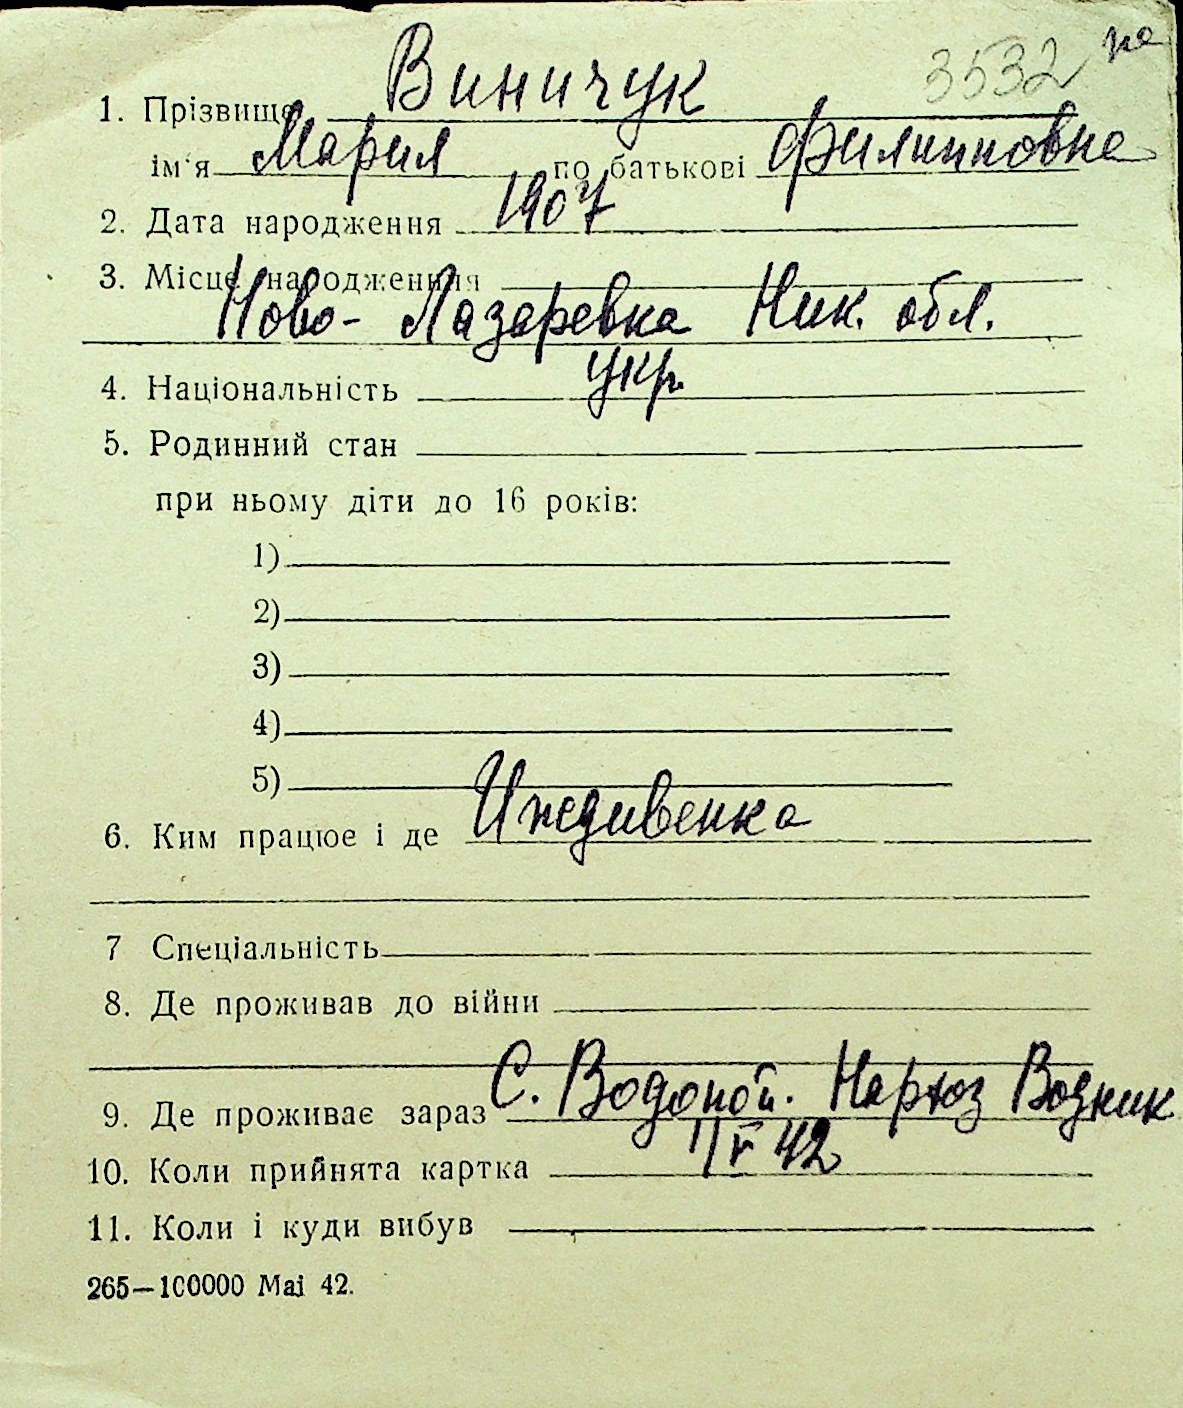 3532 на
1. Прізвище Виничук
ім'я Мария по батькові Филипповна
2. Дата народження 1907
3. Місце народження
Ново-Лазаревка Ник. обл.
4. Національність укр.
5. Родинний стан
при ньому діти до 16 років:
1)
2)
3)
4)
5)
6. Ким працює і де Иждивенка
7 Спеціальність
8. Де проживав до війни
9. Де проживає зараз С. Водопой. Нархоз Водник
10. Коли прийнята картка 1/V 42
11. Коли і куди вибув
265—100000 Mai 42.